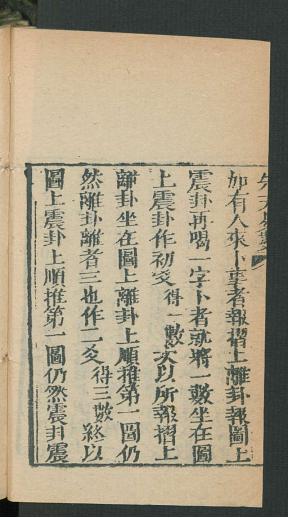 如有人來卜事者報摺上離卦報圖上
震卦再喝一字卜者就將一數坐在圖
上震卦作初爻得一數次以所報摺上
離卦坐在圖上離卦上順推第一圖仍
然離卦離者三也作二爻得三數終以
圖上震卦上順推第一圖仍然震卦震